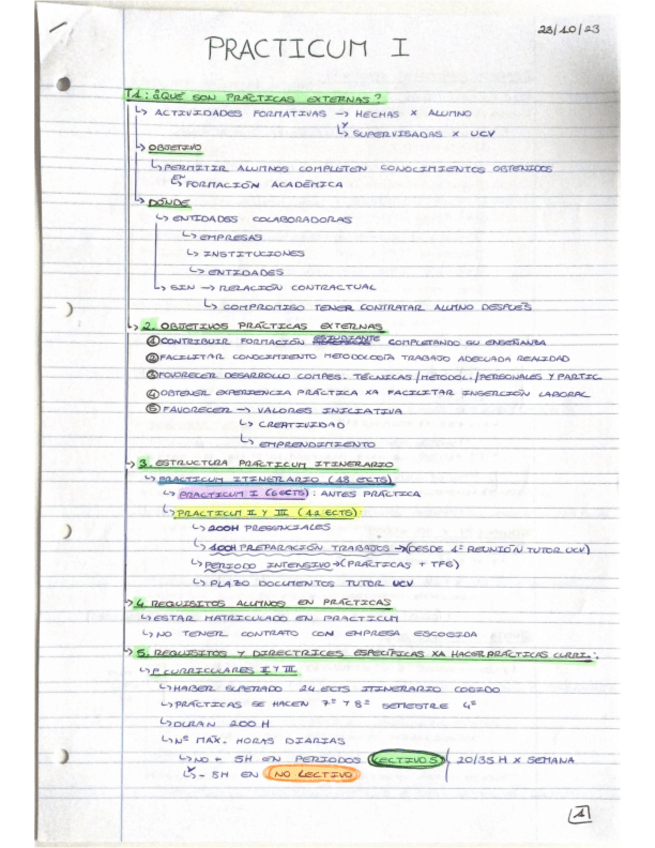 23/10/23
PRACTICUM I
T1: ¿QUÉ SON PRÁCTICAS EXTERNAS?
↳ ACTIVIDADES FORMATIVAS → HECHAS X ALUMNO
↳ Y SUPERVISADAS X UCV
↳ OBJETIVO
↳ PERMITIR ALUMNOS COMPLETEN CONOCIMIENTOS OBTENIDOS
↳ EN FORMACIÓN ACADÉMICA
↳ DÓNDE
↳ ENTIDADES COLABORADORAS
↳ EMPRESAS
↳ INSTITUCIONES
↳ ENTIDADES
↳ SIN → RELACIÓN CONTRACTUAL
↳ COMPROMISO TENER CONTRATAR ALUMNO DESPUÉS
↳ 2. OBJETIVOS PRÁCTICAS EXTERNAS
① CONTRIBUIR FORMACIÓN ESTUDIANTE COMPLETANDO SU ENSEÑANBA
② FACILITAR CONOCIMIENTO METODOLOGÍA TRABAJO ADECUADA REALIDAD
③ FAVORECER DESARROLLO COMPES. TÉCNICAS/METODOL./PERSONALES Y PARTIC.
④ OBTENER EXPERIENCIA PRÁCTICA XA FACILITAR INSERCIÓN LABORAL
⑤ FAVORECER → VALORES INICIATIVA
↳ CREATIVIDAD
↳ EMPRENDIMIENTO
↳ 3. ESTRUCTURA PRÁCTICUM ITINERARIO
↳ PRACTICUM ITINERARIO (48 ECTS)
↳ PRACTICUM I (6 ECTS): ANTES PRÁCTICA
↳ PRACTICUM II Y III (42 ECTS):
↳ 200H PRESENCIALES
↳ 100H PREPARACIÓN TRABAJOS → (DESDE 1ª REUNIÓN TUTOR UCV)
↳ PERIODO INTENSIVO → (PRÁCTICAS + TFG)
↳ PLAZO DOCUMENTOS TUTOR UCV
↳ 4. REQUISITOS ALUMNOS EN PRÁCTICAS
↳ ESTAR MATRICULADO EN PRACTICUM
↳ NO TENER CONTRATO CON EMPRESA ESCOGIDA
↳ 5. REQUISITOS Y DIRECTRICES ESPECÍFICAS XA HACER PRÁCTICAS CURRI.:
↳ P. CURRICULARES II Y III
↳ HABER SUPERADO 24 ECTS ITINERARIO COGIDO
↳ PRÁCTICAS SE HACEN 7º Y 8º SEMESTRE 4º
↳ DURAN 200 H
↳ Nº MÁX. HORAS DIARIAS
↳ NO + 5H EN PERIODOS LECTIVOS / 20/35 H X SEMANA
↳ Y - 8H EN NO LECTIVO
1